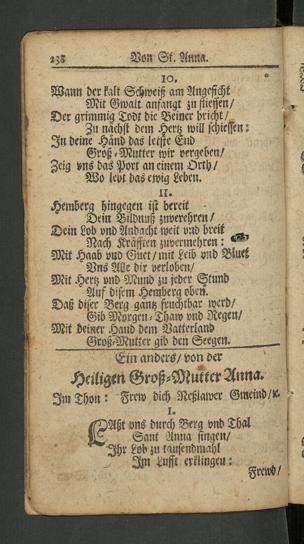 238 Von St. Anna.
10.
Wann der kalt Schweiß am Angesicht
Mit Gwalt anfangt zu fliessen/
Der grimmig Todt die Beiner bricht/
Zu nächst dem Hertz will schiessen:
In deine Händ das letste End
Groß-Mutter wir vergeben/
Zeig vns das Port an einem Orth/
Wo lebt das ewig Leben.
11.
Hemberg hingegen ist bereit
Dein Bildnuß zuverehren/
Dein Lob vnd Andacht weit vnd breit
Nach Kräfften zuvermehren:
Mit Haab vnd Guet/ mit Leib vnd Bluet
Vns Alle dir verloben/
Mit Hertz vnd Mund zu jeder Stund
Auf disem Hemberg oben.
Daß diser Berg gantz fruchtbar werd/
Gib Morgen-Thaw vnd Regen/
Mit deiner Hand dem Vatterland
Groß-Mutter gib den Seegen.
Ein anders/ von der
Heiligen Groß-Mutter Anna.
Im Thon: Frew dich Reßlawer Gmeind/ ꝛc.
1.
LAßt vns durch Berg vnd Thal
Sant Anna singen/
Ihr Lob zu tausendmahl
Im Lufft erklingen:
Frewd/